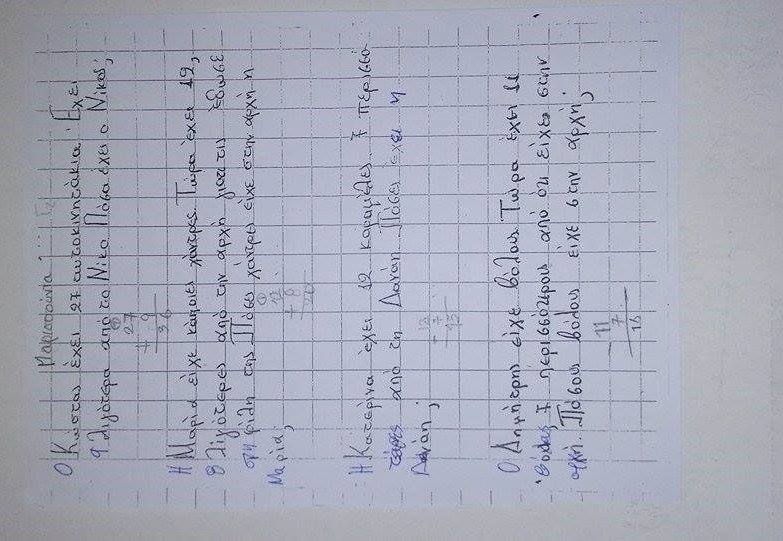 Μαριαπούντα
Ο Κώστας έχει 27 αυτοκινητάκια. Έχει
9 λιγότερα από το Νίκο. Πόσα έχει ο Νίκος;
27
+ 9
36
Η Μαρία είχε κάποιες χάντρες. Τώρα έχει 12,
8 λιγότερες από την αρχή γιατί τις έδωσε
στη φίλη της. Πόσες χάντρες είχε στην αρχή η
Μαρία;
12
+ 8
20
Η Κατερίνα έχει 12 καραμέλες 7 περισσό
τερες από τη Δανάη. Πόσες έχει η
Δανάη;
12
- 7
Ο Δημήτρης είχε βόλους. Τώρα έχει 11
βόλους, 7 περισσότερους από ότι είχε στην
αρχή. Πόσους βόλους είχε στην αρχή;
11
7